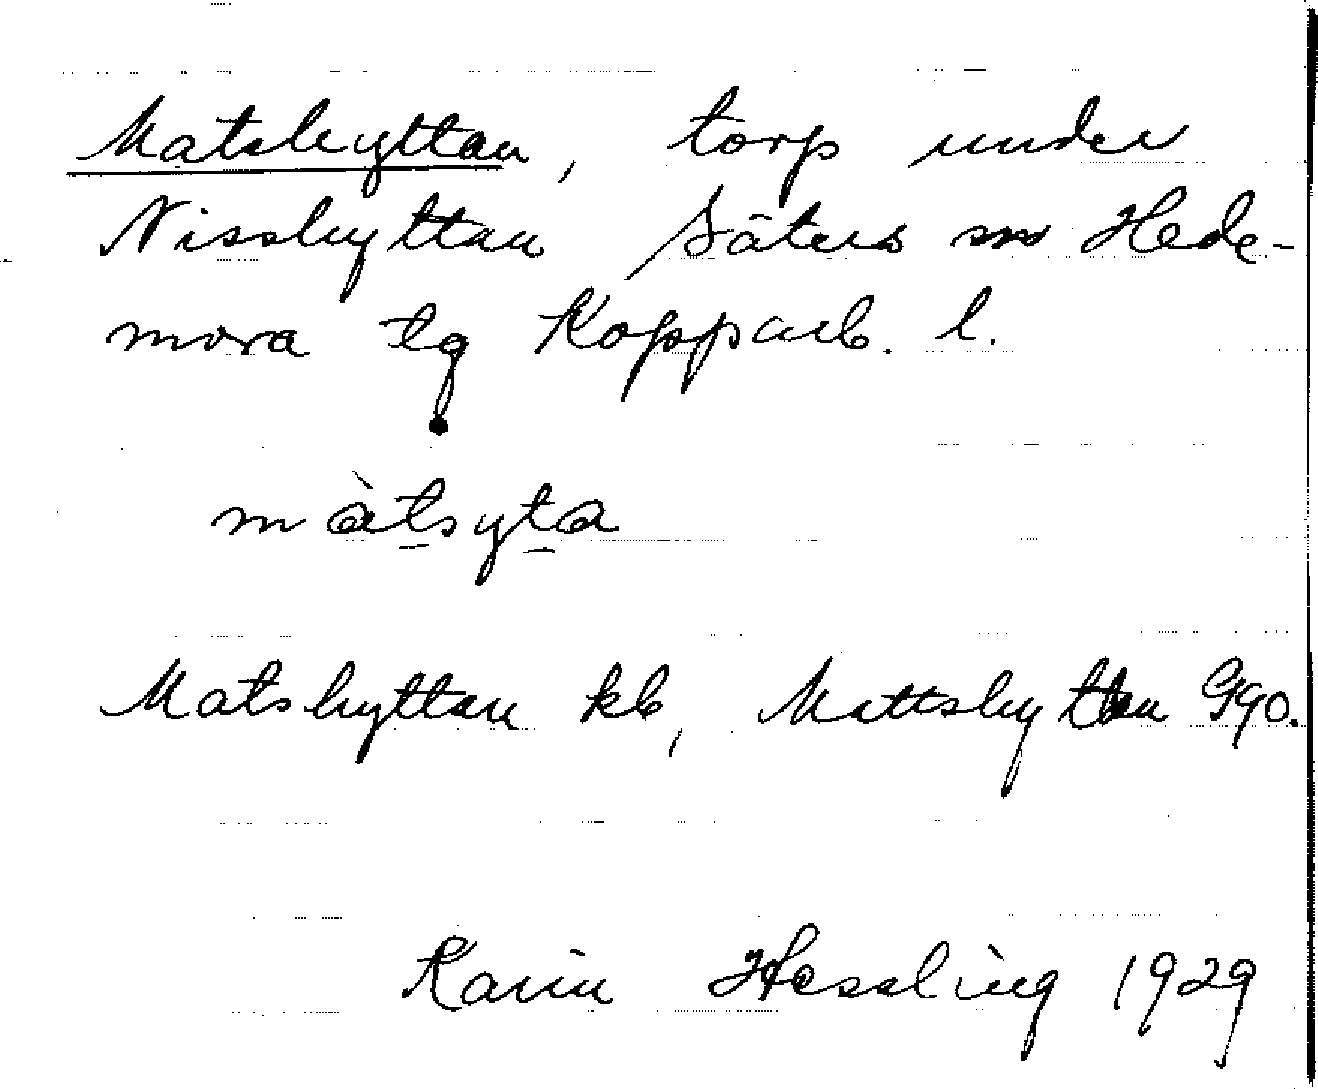 Matshyttan, torp under
Nisshyttan Säters sn Hede-
mora tg Kopparb. l.
màtsyta
Matshyttan kb, Mattshyttan GÄO.
Karin Hessling 1929